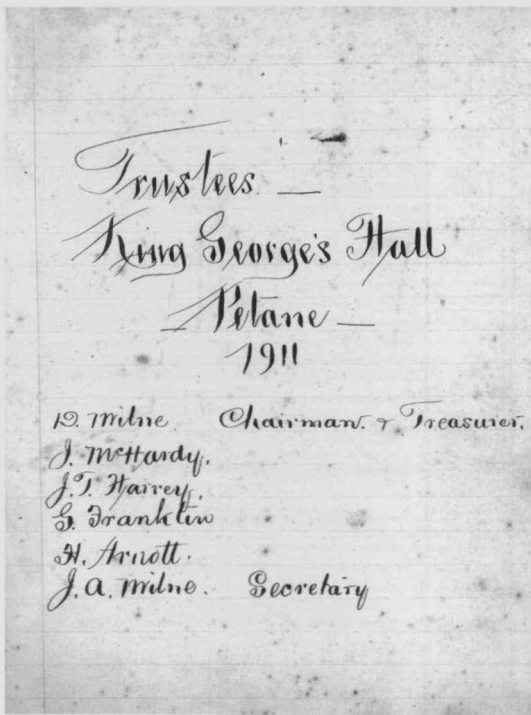 Trustees —
King George's Hall
— Petane —
1911
D. Milne Chairman. & Treasurer.
J. McHardy.
J. T. Harvey.
G. Franklin
H. Arnott.
J. A. Milne. Secretary